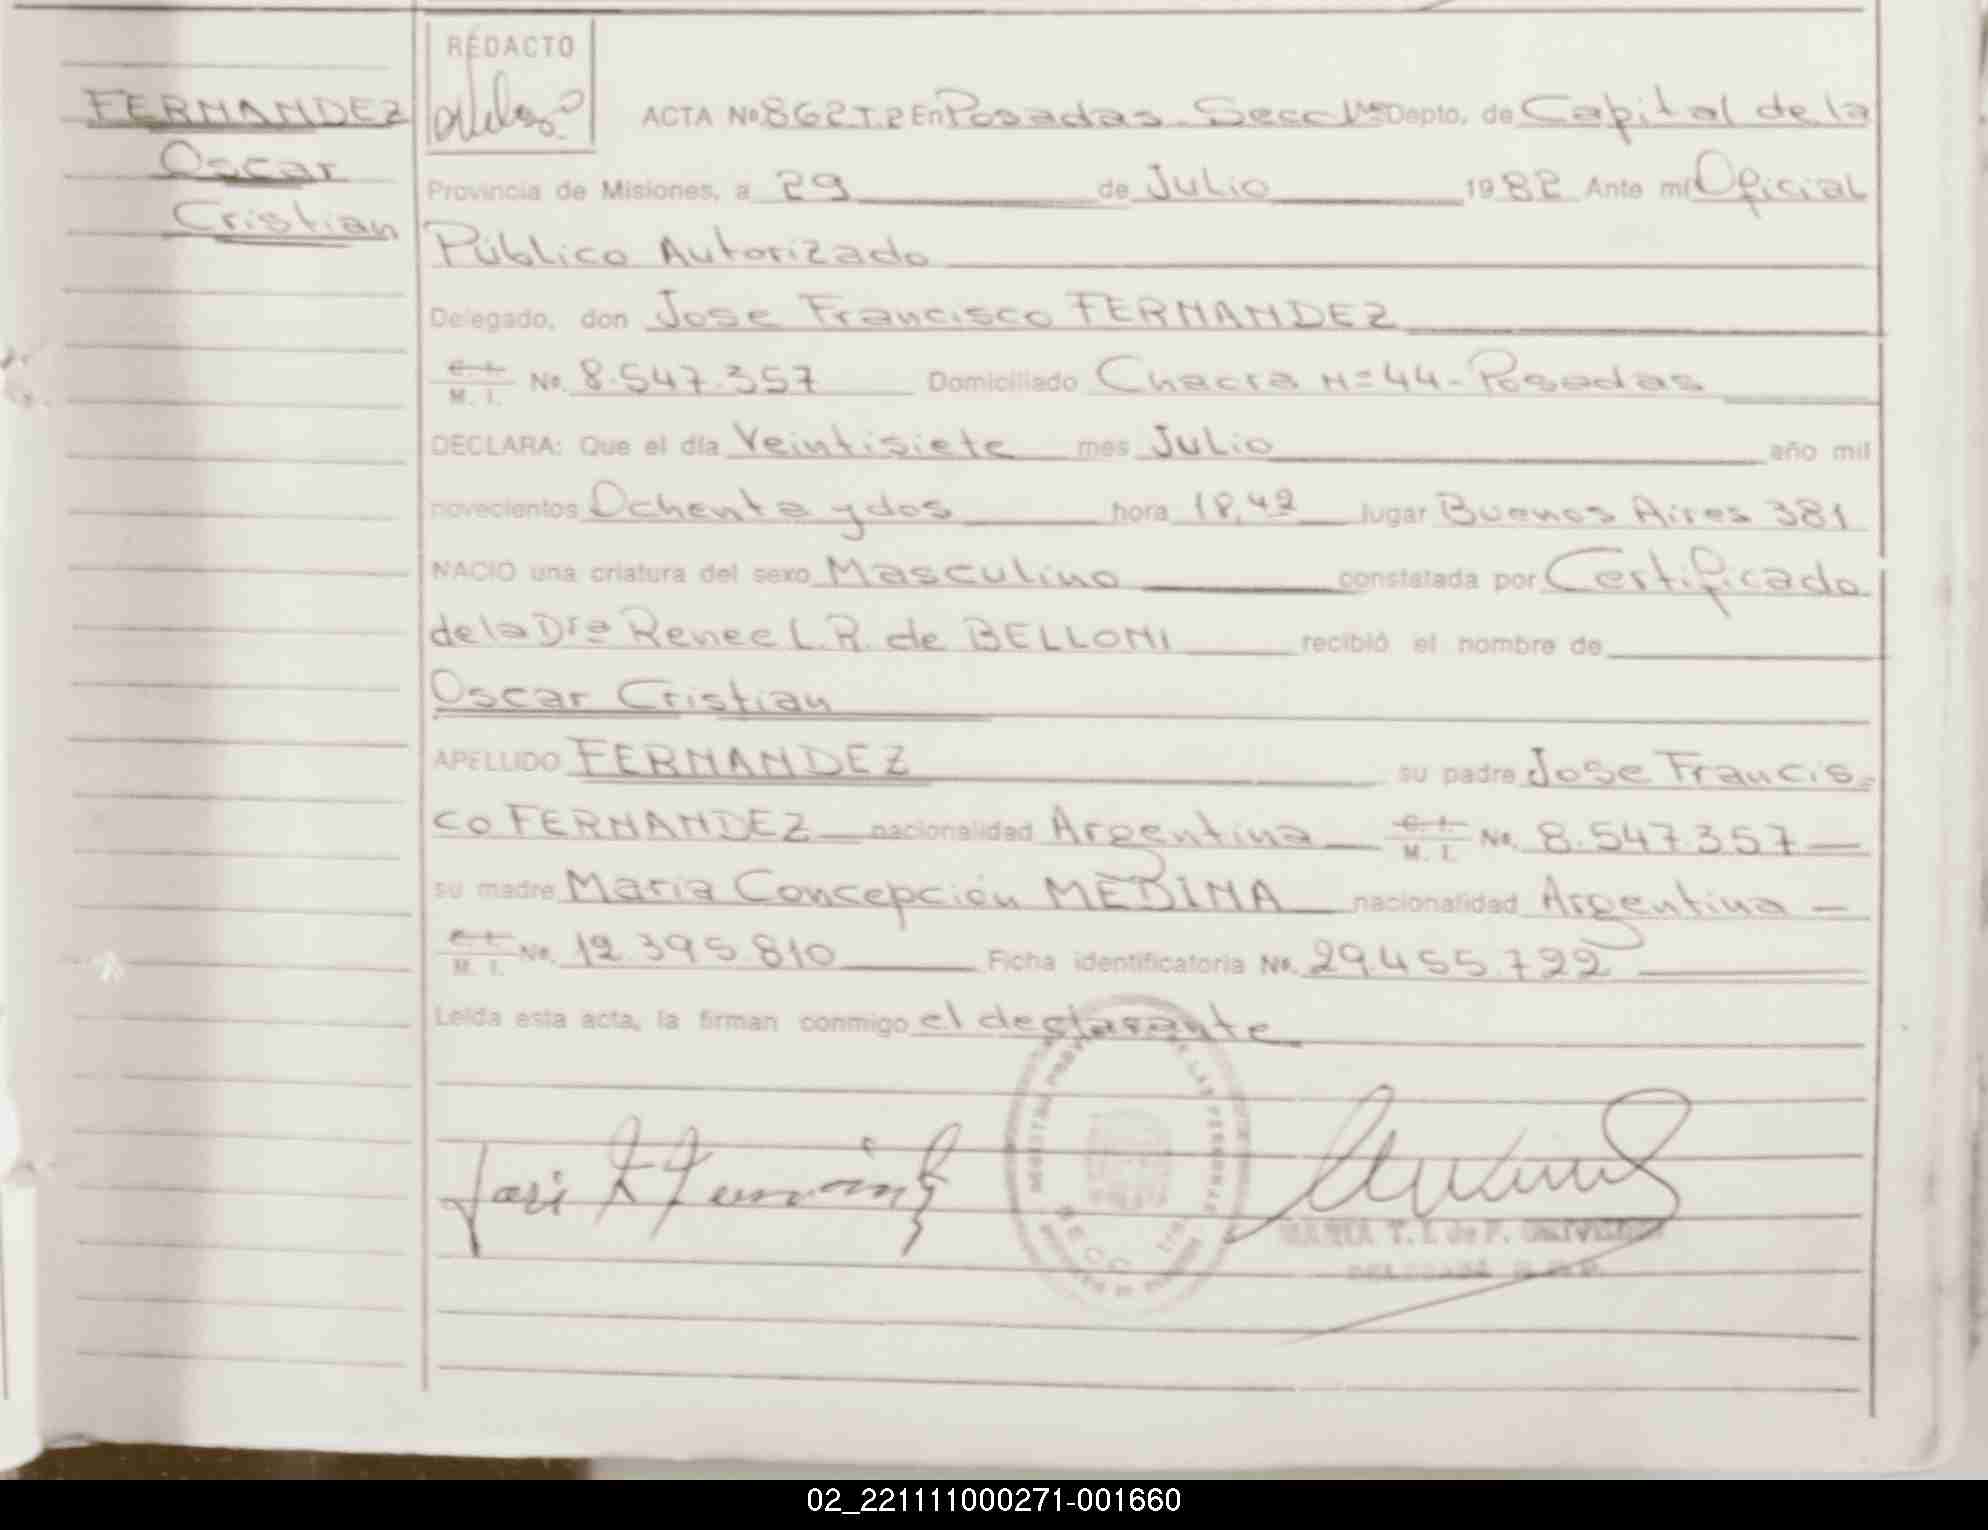 FERNANDEZ
Oscar
Cristian
REDACTO
ACTA No 862 T.2 En Posadas - Secc 1ª Depto. de Capital de la
Provincia de Misiones, a 29 de Julio 1982 Ante mí Oficial
Público Autorizado
Delegado, don Jose Francisco FERNANDEZ
C. I.
M. I. No. 8.547.357 Domiciliado Chacra Nº 44 - Posadas
DECLARA: Que el día Veintisiete mes Julio año mil
novecientos Ochenta y dos hora 18,42 lugar Buenos Aires 381
NACIO una criatura del sexo Masculino constatada por Certificado
de la Drª Renee L. R. de BELLONI recibió el nombre de
Oscar Cristian
APELLIDO FERNANDEZ su padre Jose Francis=
co FERNANDEZ nacionalidad Argentina C. I.
M. I. No. 8.547.357
su madre Maria Concepción MEDINA nacionalidad Argentina
C. I.
M. I. No. 12.395.810 Ficha identificatoria No. 29.455.722
Leída esta acta, la firman conmigo el declarante
MARIA T. I. de P.
02_221111000271-001660